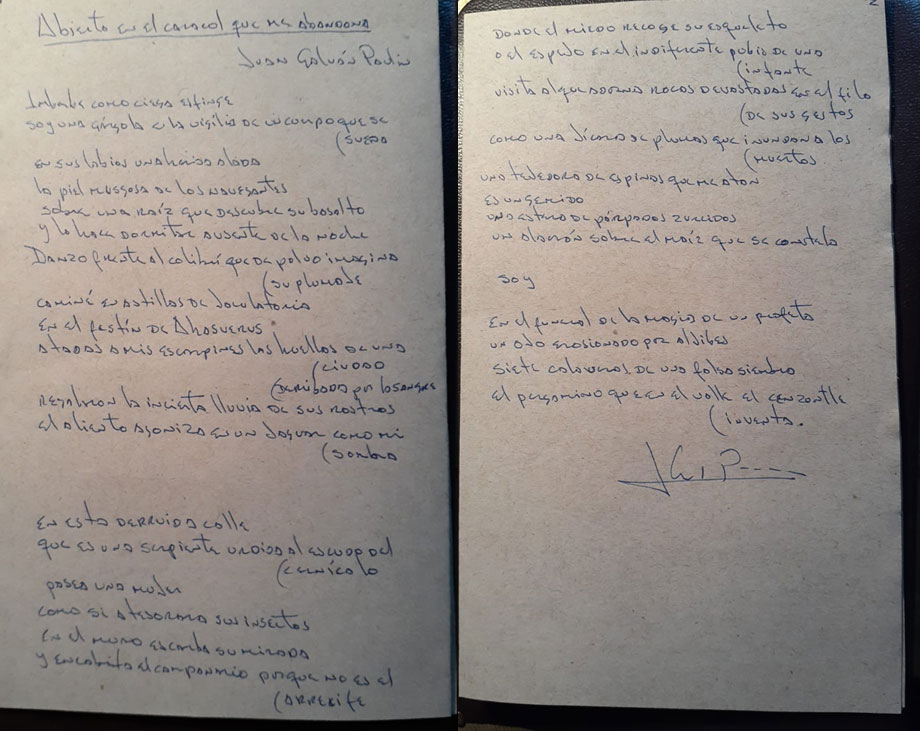 Abierto en el caracol que me abandona
Juan Galván Paulin
Imbabe como ciega esfinge
soy una gárgola a la vigilia de un cuerpo que se
(sueña
en sus labios una herida alada
la piel musgosa de los navegantes
sobre una raíz que descubre su basalto
y lo hace dormitar ausente de la noche
Danzo frente al colibrí que de polvo imagina
(su plumaje
caminé en astillos de jaculatoria
en el festín de Ahasuerus
atadas a mis escarpines las huellas de una
(ciudad
(derribada por la sangre
regalaron la incierta lluvia de sus rostros
el aliento agoniza en un jaguar como mi
(sombra
En esta derruida calle
que es una serpiente uncida al escup del
(cernícalo
pasea una mujer
como si atesorara sus insectos
en el muro escarba su mirada
y encabrita el campanario porque no es el
(arrecife
2
donde el miedo recoge su esqueleto
o el espejo en el indiferente pubis de una
(infante
visita al que adorna rocas devastadas en el filo
(de sus gestos
como una jícara de plumas que inundan a los
(muertos
una tejedora de espinas que me atan
es un gemido
una estera de párpados zurcidos
un alacrán sobre el maíz que se constela
soy
En el funeral de la magia de un profeta
un ojo erosionado por aljibes
siete calaveras de una falsa siembra
el pergamino que en el valle el cenzontle
(inventa.